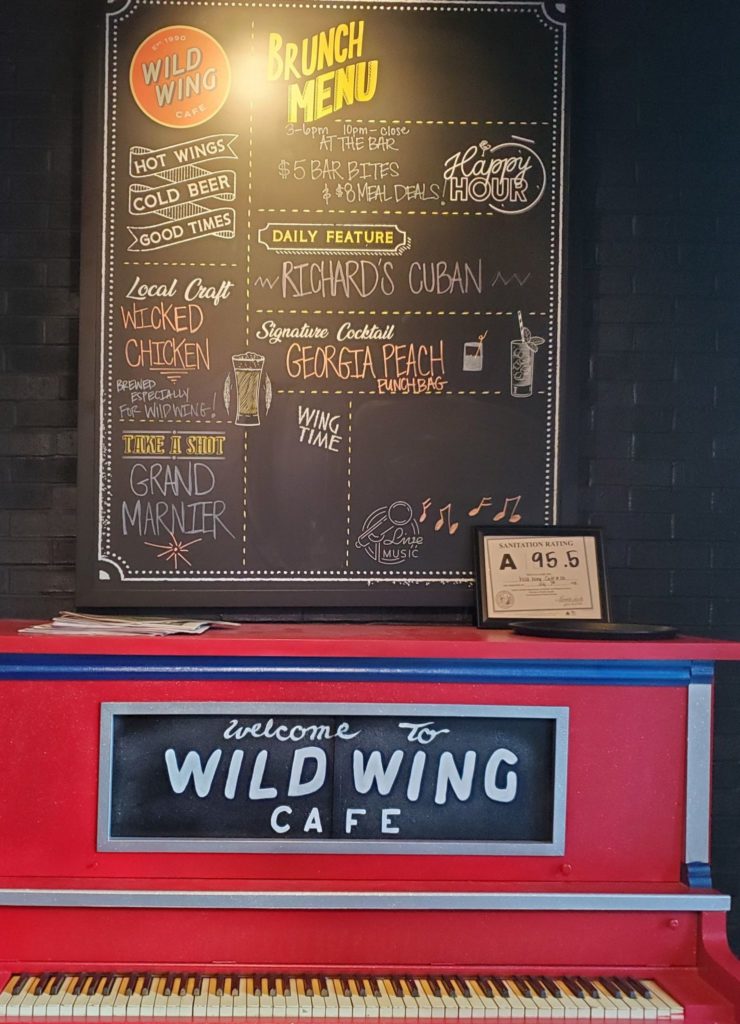 EST. 1990
WILD
WING
CAFE
HOT WINGS
COLD BEER
GOOD TIMES
BRUNCH
MENU
3-6pm 10pm-close
AT THE BAR
$5 BAR BITES
& $8 MEAL DEALS!
Happy
HOUR
DAILY FEATURE
RICHARD'S CUBAN
Local Craft
WICKED
CHICKEN
BREWED
ESPECIALLY
FOR WILD WING!
Signature Cocktail
GEORGIA PEACH
PUNCH BAG
TAKE A SHOT
GRAND
MARNIER
WING
TIME
Live
MUSIC
SANITATION RATING
A 95.5
Welcome To
WILD WING
CAFE